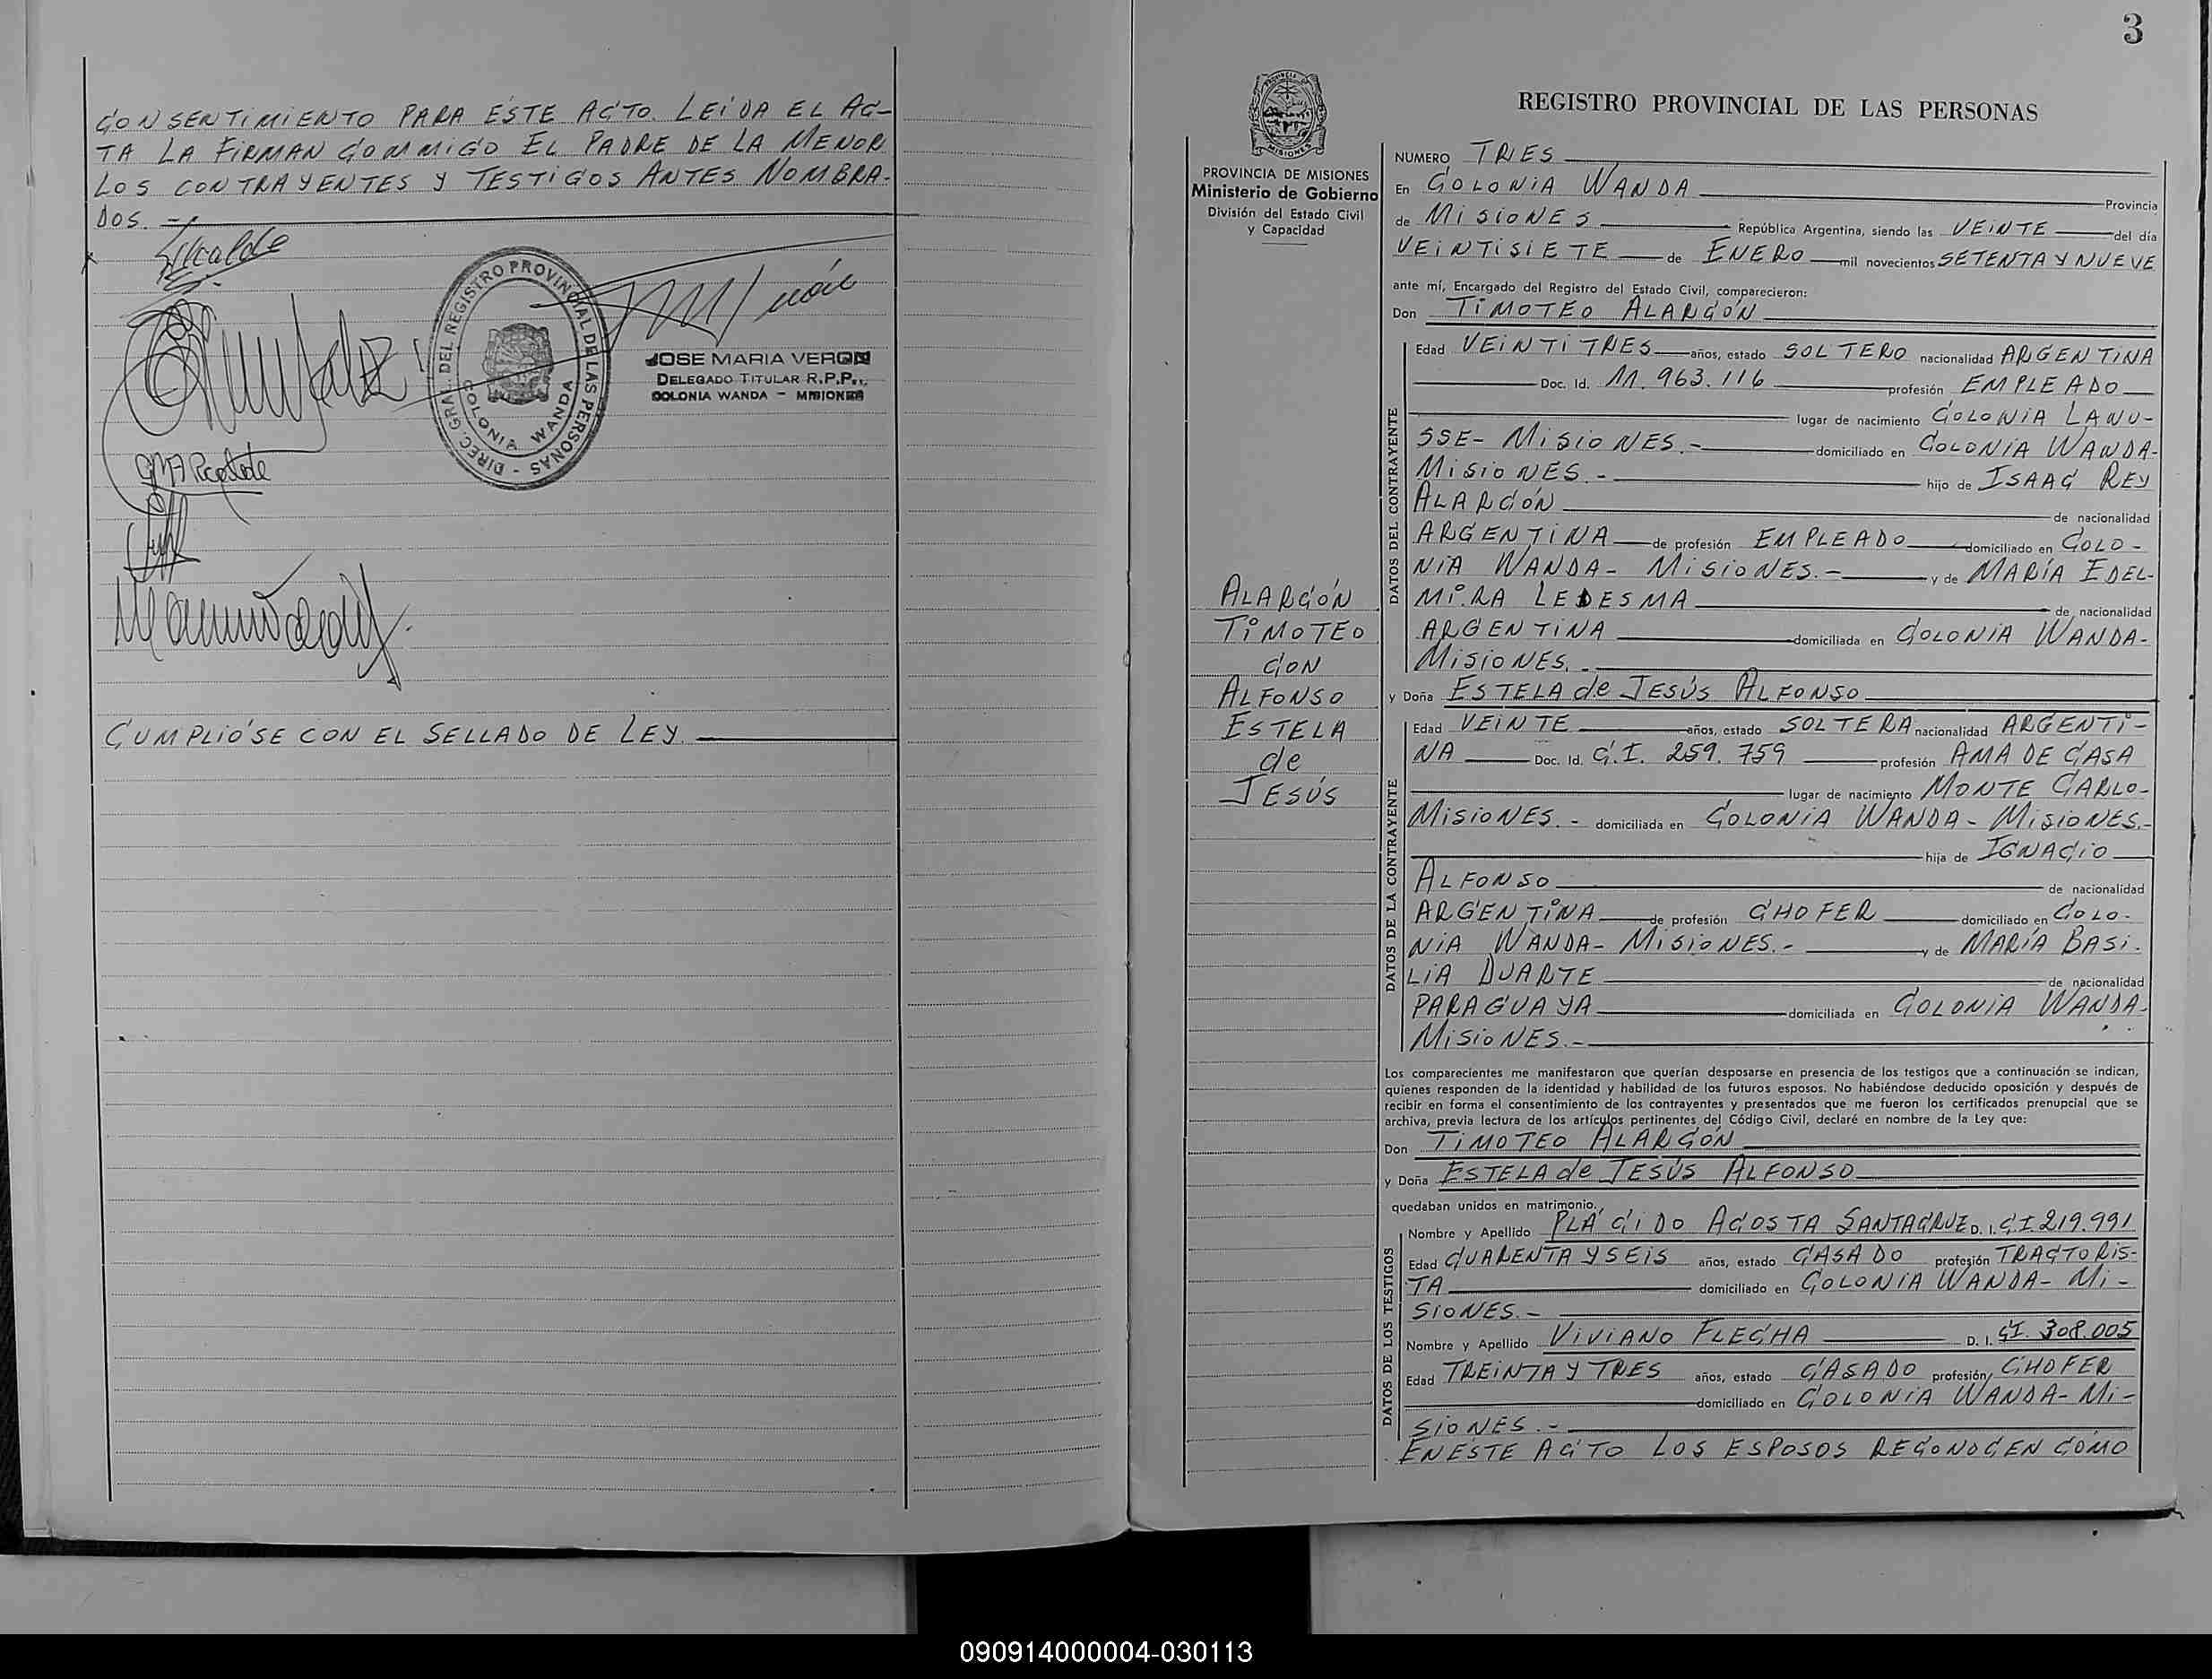 CONSENTIMIENTO PARA ÉSTE ACTO. LEÍDA EL AC-
TA LA FIRMAN COMMIGO EL PADRE DE LA MENOR
LOS CONTRAYENTES Y TESTIGOS ANTES NOMBRA-
DOS.-
DIREC. GRAL. DEL REGISTRO PROVINCIAL DE LAS PERSONAS -
COLONIA WANDA
JOSE MARIA VERON
DELEGADO TITULAR R.P.P.
COLONIA WANDA - MISIONES
CUMPLIÓSE CON EL SELLADO DE LEY.
3
PROVINCIA DE MISIONES
Ministerio de Gobierno
División del Estado Civil
y Capacidad
ALARCÓN
TIMOTEO
CON
ALFONSO
ESTELA
de
JESÚS
REGISTRO PROVINCIAL DE LAS PERSONAS
NUMERO TRES
En COLONIA WANDA Provincia
de MISIONES República Argentina, siendo las VEINTE del día
VEINTISIETE de ENERO mil novecientos SETENTA Y NUEVE
ante mí, Encargado del Registro del Estado Civil, comparecieron:
Don TIMOTEO ALARCÓN
DATOS DEL CONTRAYENTE
Edad VEINTITRES años, estado SOLTERO nacionalidad ARGENTINA
Doc. Id. 11.963.116 profesión EMPLEADO
lugar de nacimiento COLONIA LANU-
SSE- MISIONES.- domiciliado en COLONIA WANDA-
MISIONES.- hijo de ISAAC REY
ALARCÓN de nacionalidad
ARGENTINA de profesión EMPLEADO domiciliado en COLO-
NIA WANDA- MISIONES.- y de MARÍA EDEL-
MIRA LEDESMA de nacionalidad
ARGENTINA domiciliada en COLONIA WANDA-
MISIONES.-
y Doña ESTELA de JESÚS ALFONSO
DATOS DE LA CONTRAYENTE
Edad VEINTE años, estado SOLTERA nacionalidad ARGENTI-
NA Doc. Id. C.I. 259.759 profesión AMA DE CASA
lugar de nacimiento MONTE CARLO-
MISIONES.- domiciliada en COLONIA WANDA- MISIONES.-
hija de IGNACIO
ALFONSO de nacionalidad
ARGENTINA de profesión CHOFER domiciliado en COLO-
NIA WANDA- MISIONES.- y de MARÍA BASI-
LIA DUARTE de nacionalidad
PARAGUAYA domiciliada en COLONIA WANDA-
MISIONES.-
Los comparecientes me manifestaron que querían desposarse en presencia de los testigos que a continuación se indican,
quienes responden de la identidad y habilidad de los futuros esposos. No habiéndose deducido oposición y después de
recibir en forma el consentimiento de los contrayentes y presentados que me fueron los certificados prenupcial que se
archiva, previa lectura de los artículos pertinentes del Código Civil, declaré en nombre de la Ley que:
Don TIMOTEO ALARCÓN
y Doña ESTELA de JESÚS ALFONSO
quedaban unidos en matrimonio.
DATOS DE LOS TESTIGOS
Nombre y Apellido PLÁCIDO ACOSTA SANTACRUZ D. I. C.I. 219.991
Edad CUARENTA Y SEIS años, estado CASADO profesión TRACTORIS-
TA domiciliado en COLONIA WANDA- MI-
SIONES.-
Nombre y Apellido VIVIANO FLECHA D. I. C.I. 308.005
Edad TREINTA Y TRES años, estado CASADO profesión CHOFER
domiciliado en COLONIA WANDA- MI-
SIONES.-
EN ESTE ACTO LOS ESPOSOS RECONOCEN COMO
090914000004-030113